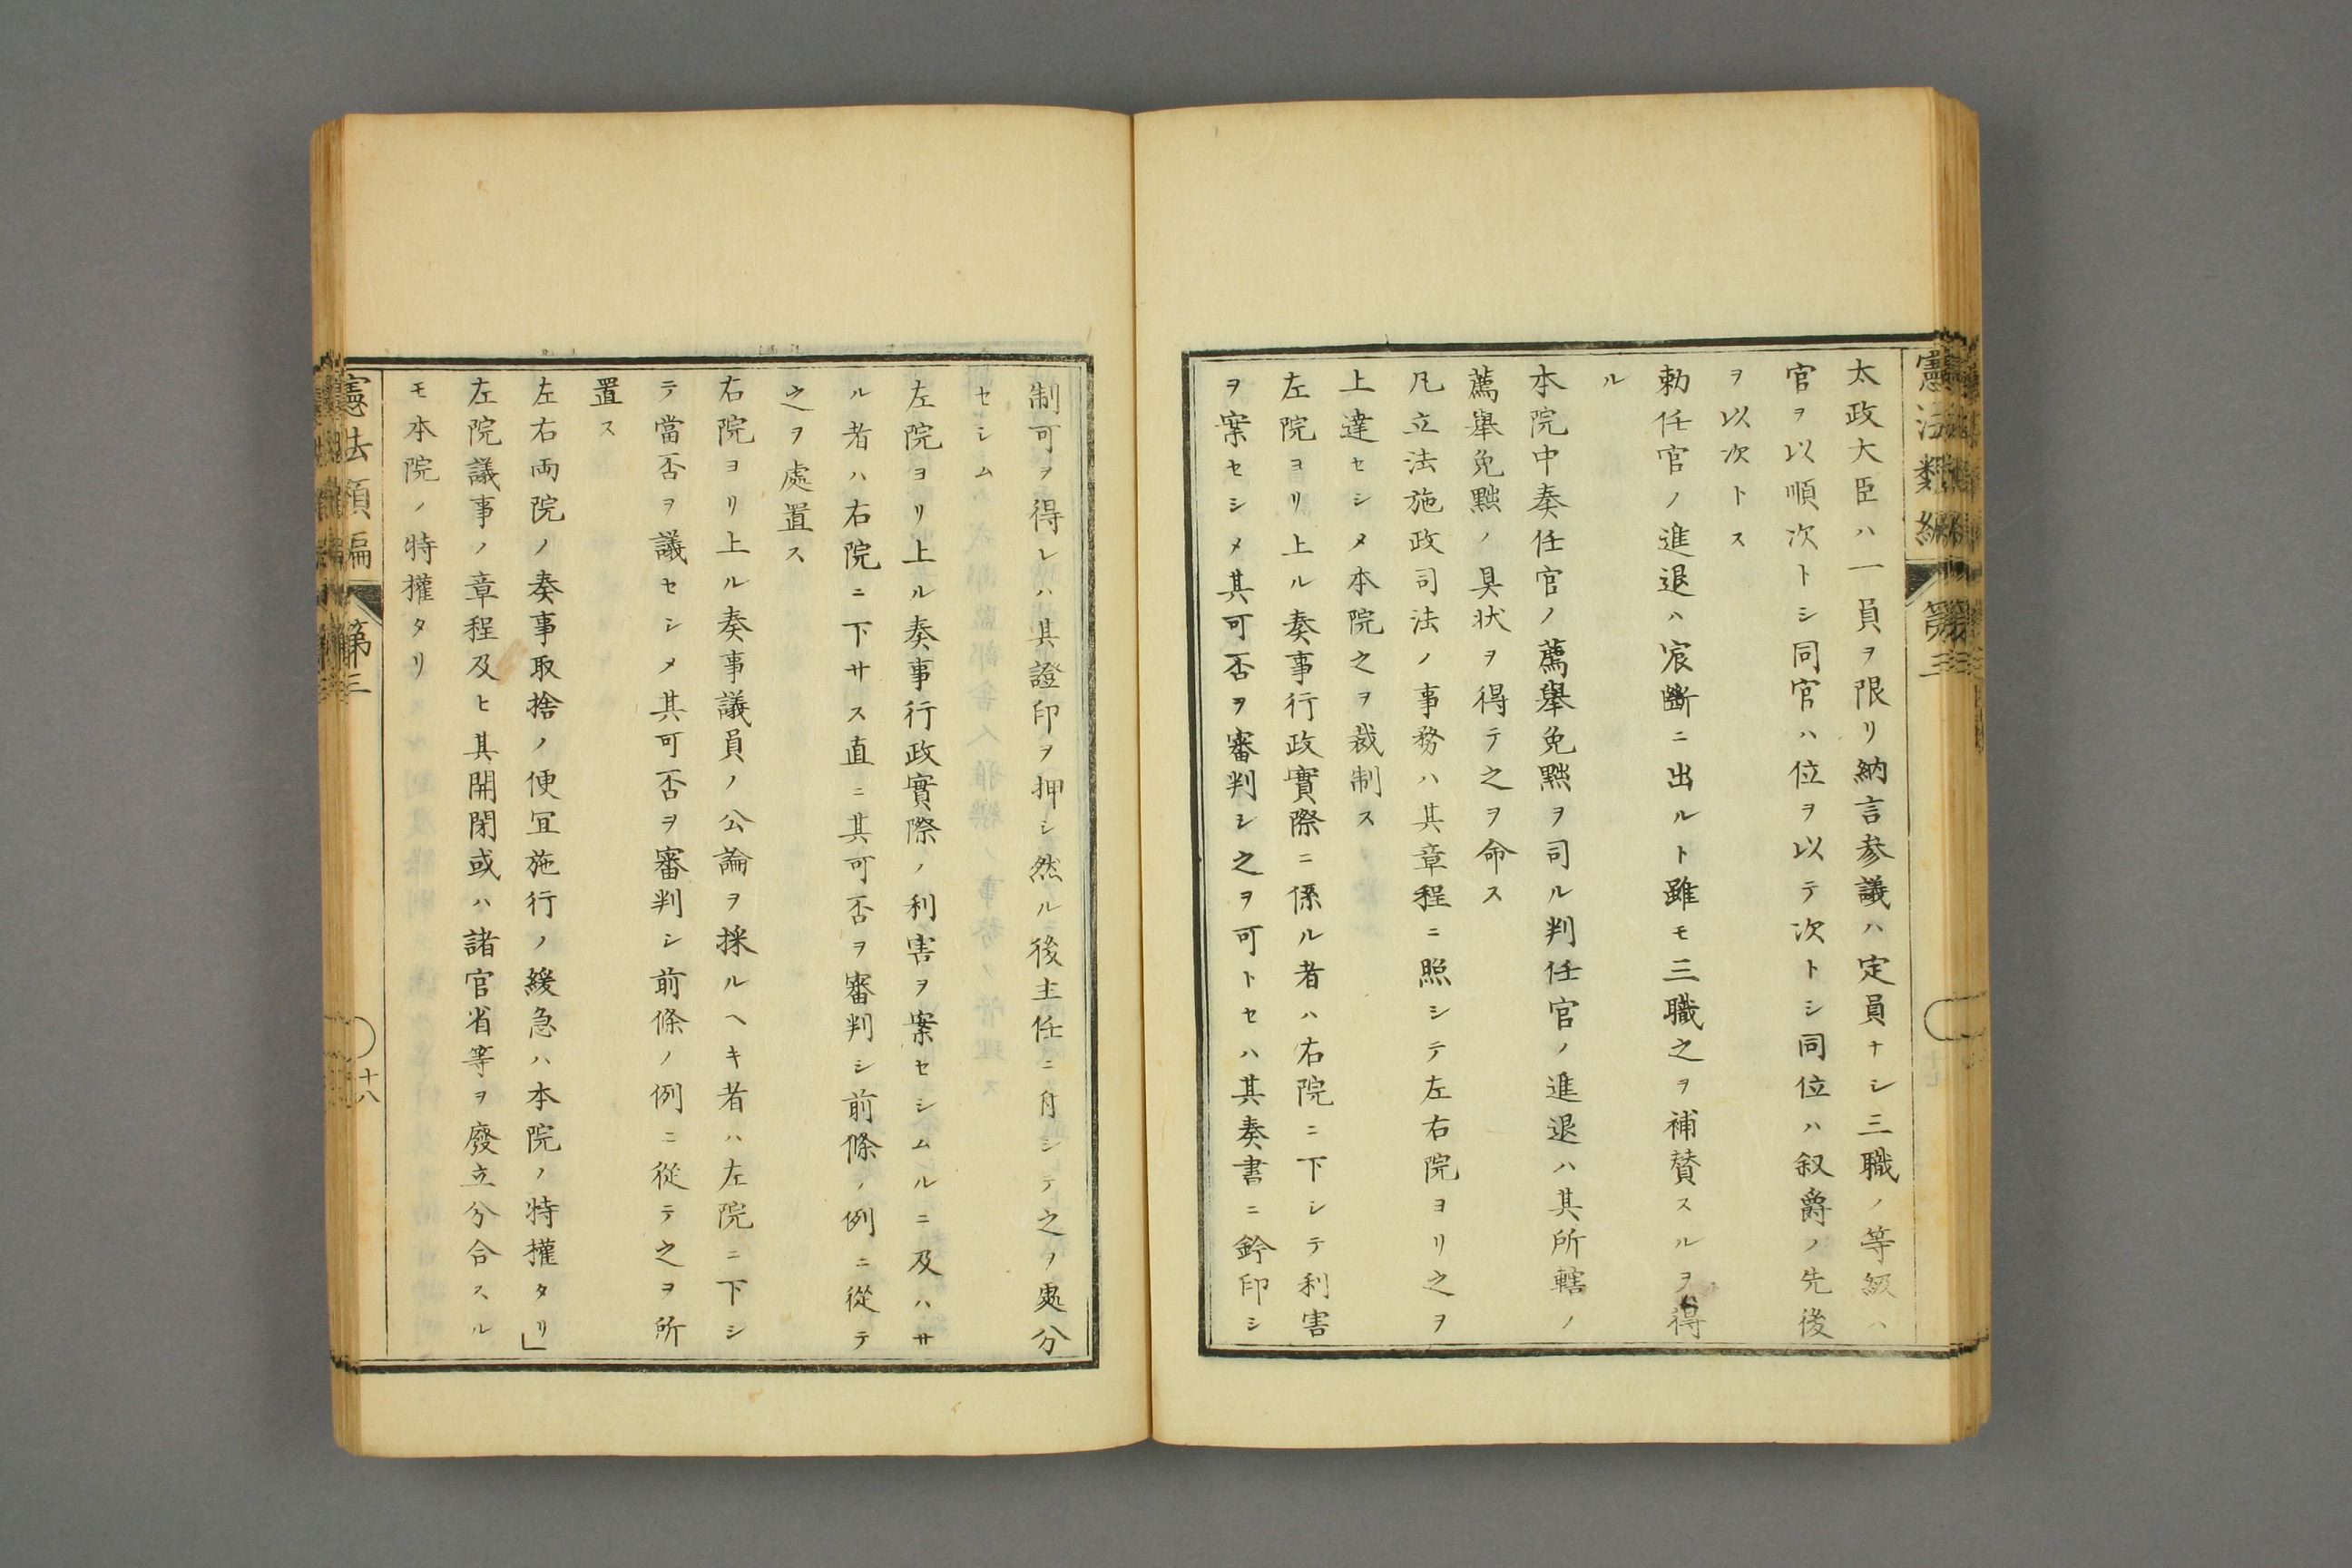 憲法類編 第三
太政大臣ハ一員ヲ限リ納言参議ハ定員ナシ三職ノ等級ハ
官ヲ以順次トシ同官ハ位ヲ以テ次トシ同位ハ叙爵ノ先後
ヲ以次トス
勅任官ノ進退ハ宸斷ニ出ルト雖モ三職之ヲ補賛スルヲ得
ル
本院中奏任官ノ薦擧免黜ヲ司ル判任官ノ進退ハ其所轄ノ
薦擧免黜ノ具状ヲ得テ之ヲ命ス
凡立法施政司法ノ事務ハ其章程ニ照シテ左右院ヨリ之ヲ
上達セシメ本院之ヲ裁制ス
左院ヨリ上ル奏事行政實際ニ係ル者ハ右院ニ下シテ利害
ヲ案セシメ其可否ヲ審判シ之ヲ可トセハ其奏書ニ鈐印シ
制可ヲ得レハ其證印ヲ押シ然ル後主任ニ付シテ之ヲ處分
セシム
左院ヨリ上ル奏事行政實際ノ利害ヲ案セシムルニ及ハサ
ル者ハ右院ニ下サス直ニ其可否ヲ審判シ前條ノ例ニ從テ
之ヲ處置ス
右院ヨリ上ル奏事議員ノ公論ヲ採ルヘキ者ハ左院ニ下シ
テ當否ヲ議セシメ其可否ヲ審判シ前條ノ例ニ從テ之ヲ所
置ス
左右両院ノ奏事取捨ノ便冝施行ノ緩急ハ本院ノ特權タリ」
左院議事ノ章程及ヒ其開閉或ハ諸官省等ヲ廢立分合スル
モ本院ノ特權タリ
憲法類編 第三 十八